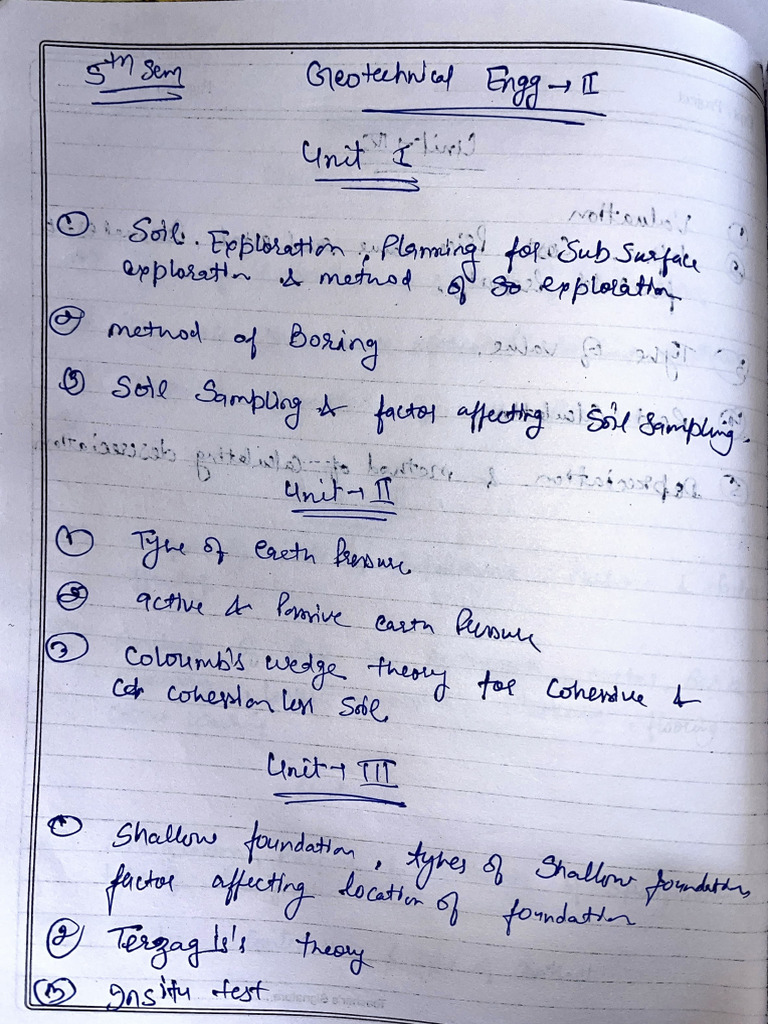 5th Sem Geotechnical Engg → II
Unit I
① Soil Exploration, Planning for Sub Surface
exploration & method of exploration
② method of Boring
③ Soil Sampling & factor affecting Soil Sampling.
Unit → II
① Type of earth Pressure
② active & Passive earth Pressure
③ Coloumb's wedge theory for Cohesive &
cohesion less Soil
Unit → III
① Shallow foundation, types of Shallow foundation,
factor affecting location of foundation
② Terzagis's theory
③ Insitu test